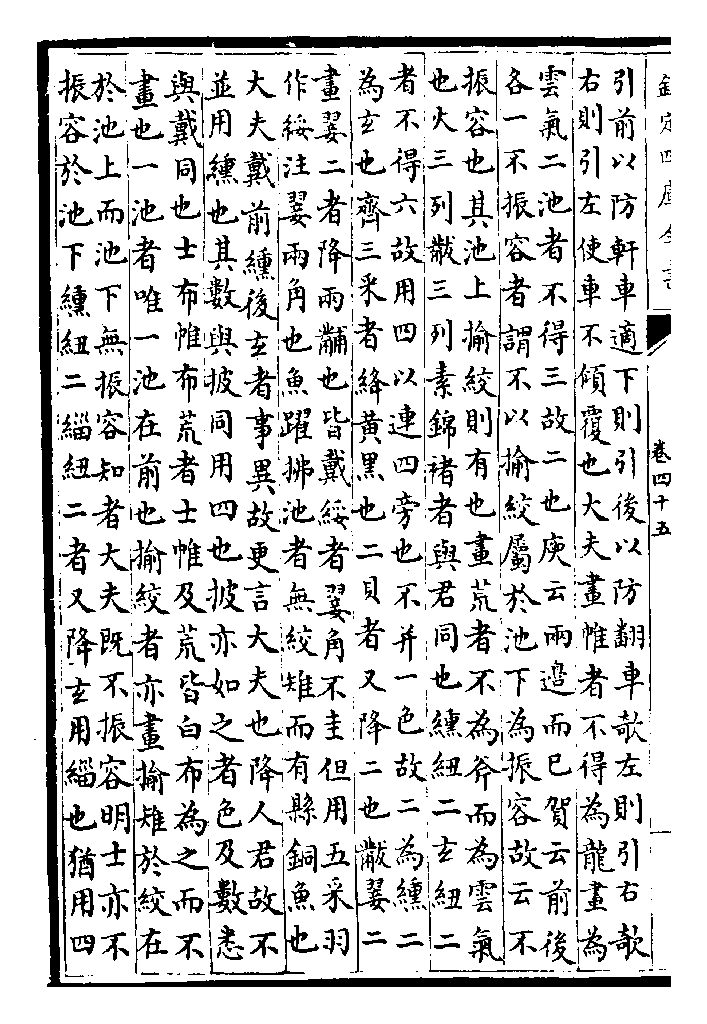 欽定四庫全書
卷四十五
引前以防軒車適下則引後以防翻車欹左則引右欹
右則引左使車不傾覆也大夫畫帷者不得為龍畫為
雲氣二池者不得三故二也庾云兩邉而已賀云前後
各一不振容者謂不以揄絞屬於池下為振容故云不
振容也其池上揄絞則有也畫荒者不為斧而為雲氣
也火三列黻三列素錦褚者與君同也纁紐二玄紐二
者不得六故用四以連四旁也不并一色故二為纁二
為玄也齊三采者絳黄黑也二貝者又降二也黻翣二
畫翣二者降兩黼也皆戴綏者翣角不圭但用五采羽
作綏注翣兩角也魚躍拂池者無絞雉而有縣銅魚也
大夫戴前纁後玄者事異故更言大夫也降人君故不
並用纁也其數與披同用四也披亦如之者色及數悉
與戴同也士布帷布荒者士帷及荒皆白布為之而不
畫也一池者唯一池在前也揄絞者亦畫揄雉於絞在
於池上而池下無振容知者大夫既不振容明士亦不
振容於池下纁紐二緇紐二者又降玄用緇也猶用四